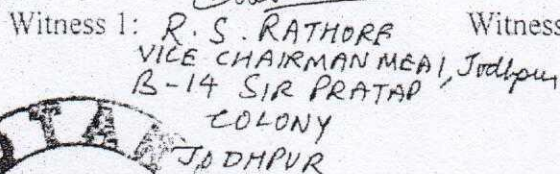 Witness 1: R. S. RATHORE Witness
VICE CHAIRMAN MEAI, Jodhpur
B-14 SIR PRATAP
COLONY
JODHPUR
TAN